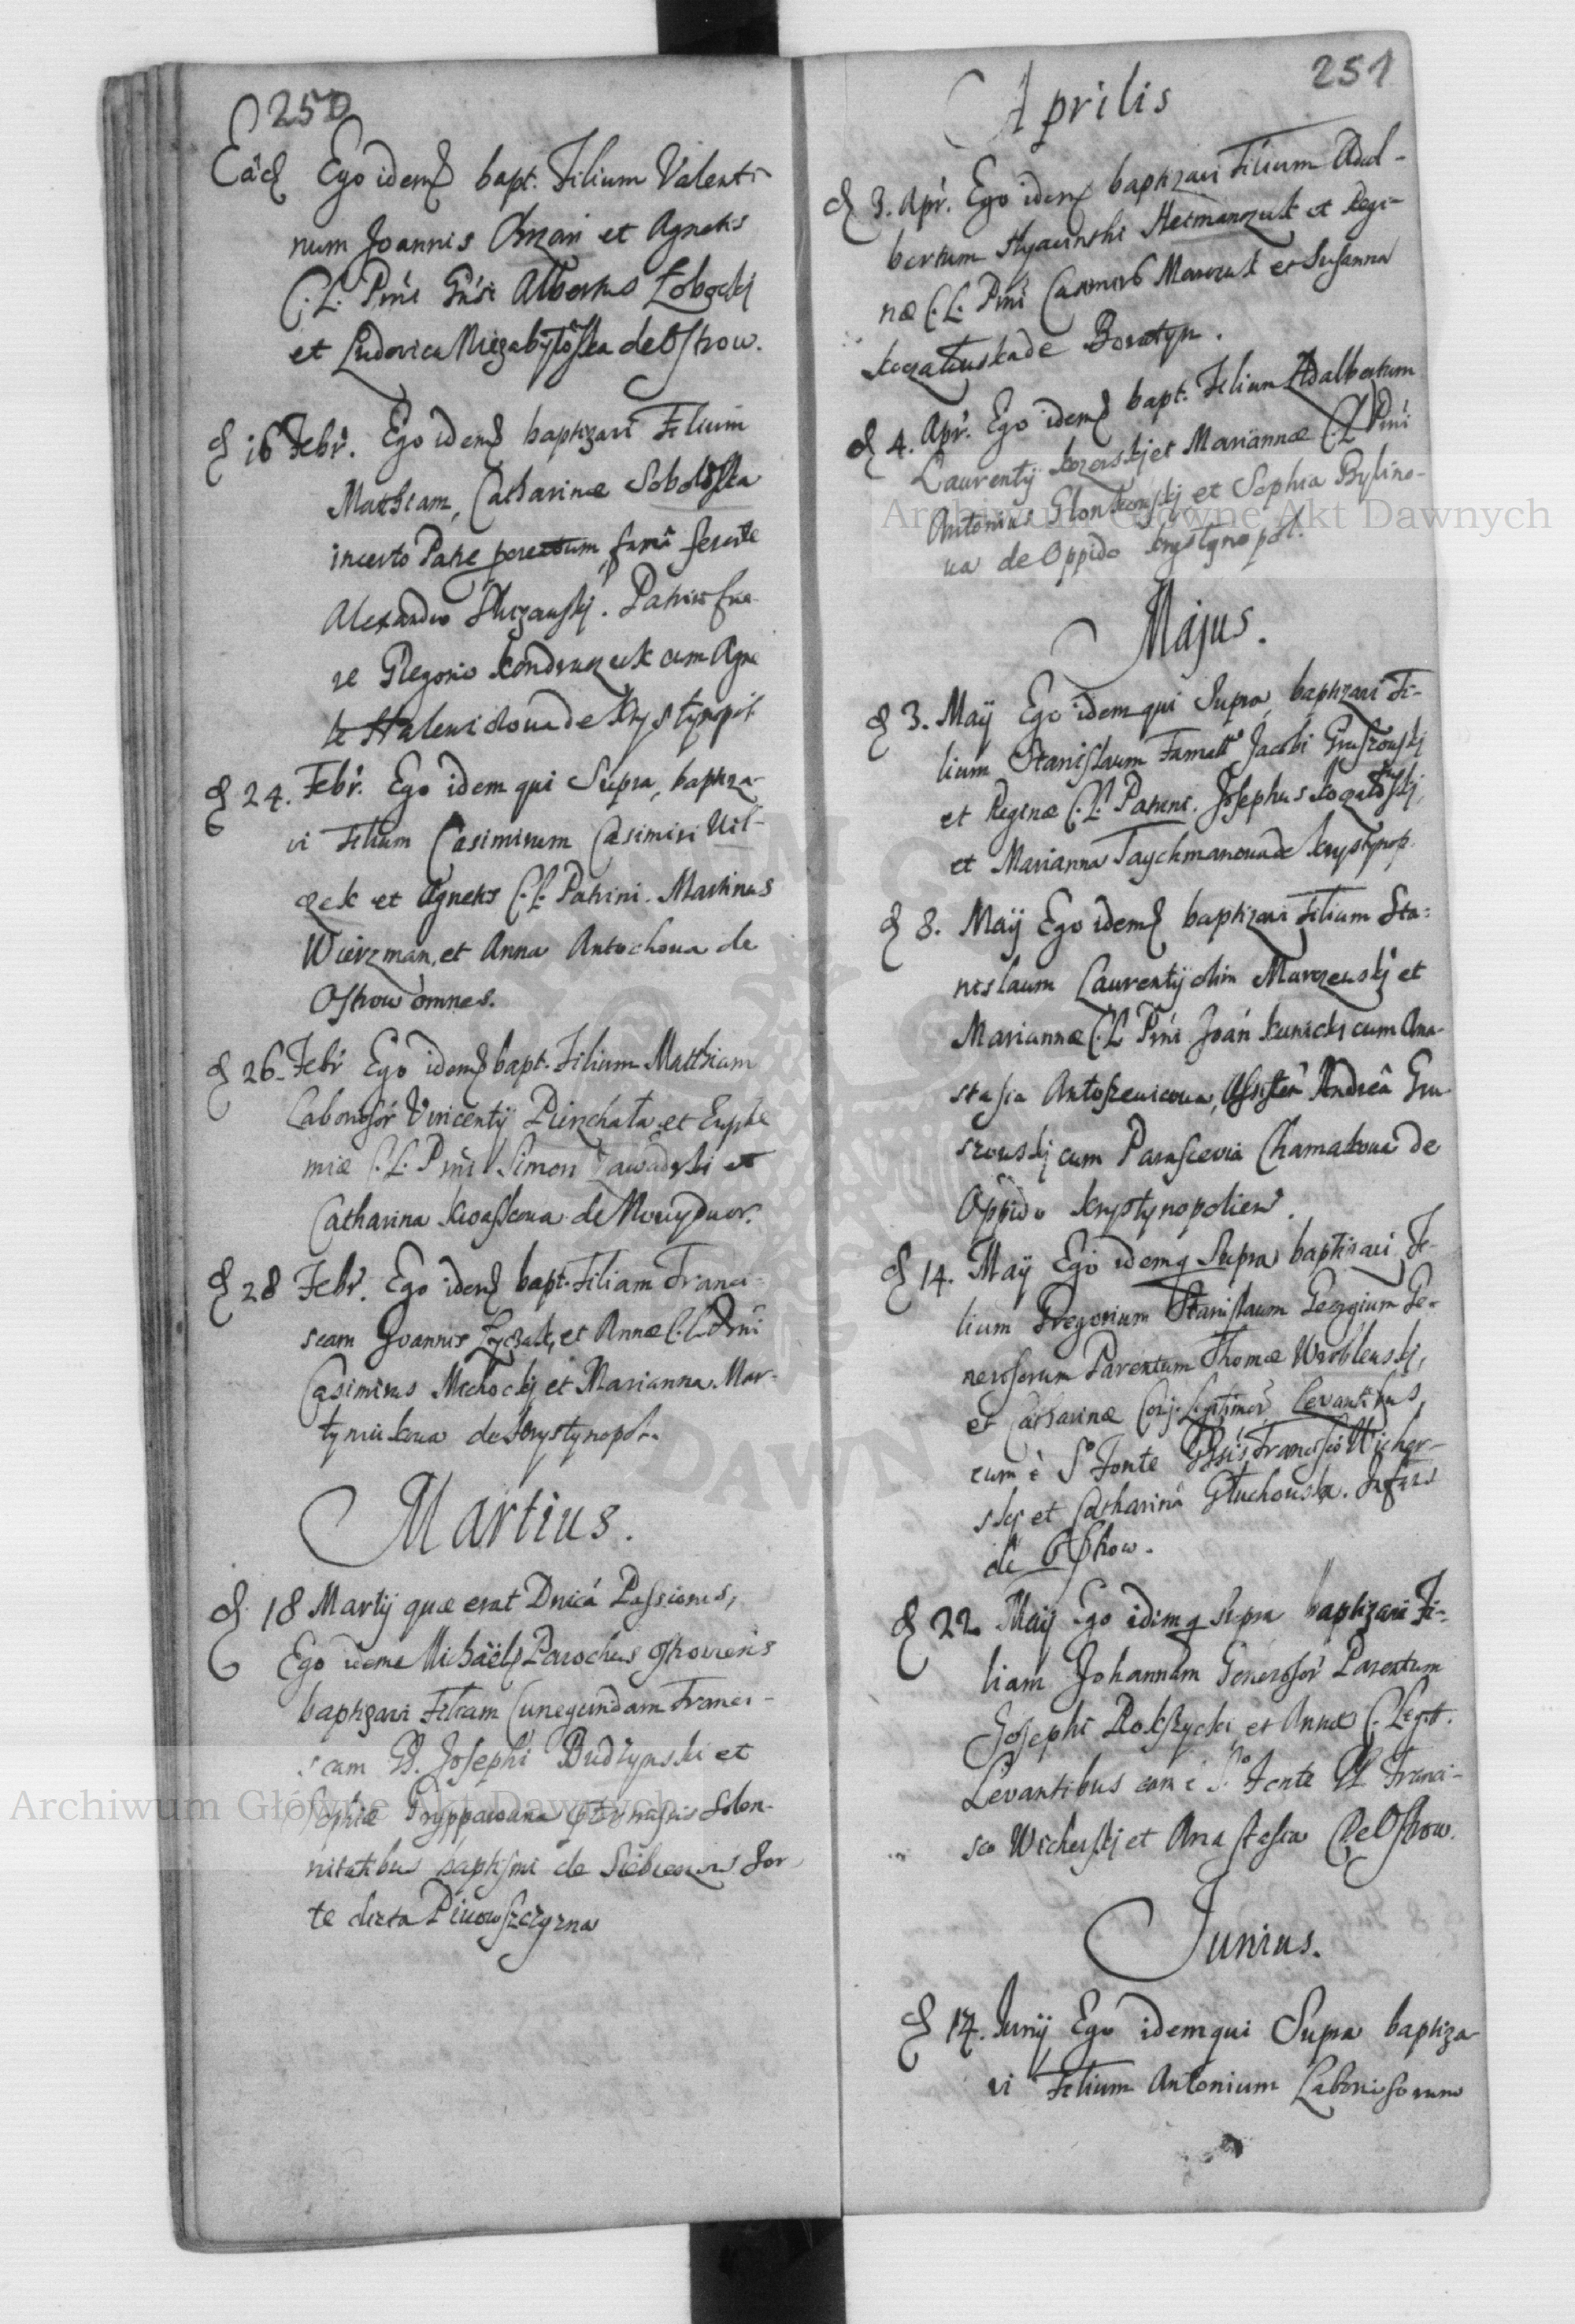 250
Eâd Ego idem bapt. Filium Valenti-
num Joannis et Agnetis
C. L. Prni Gnsi Albertus Łobocki
et Ludovica de Ostrow.
d 16 Febr. Ego idem baptizavi Filium
Mathiam, Catharinæ Sobolôska
incerto Patre famâ ferente
Alexandro . Patrini fue-
re Gregorio Kondraczuk cum Agne
te Halewiczowa de Krystynopol
d 24. Febr. Ego idem qui Supra, baptiza-
vi Filium Casimirum Casimiri Wil-
czek et Agnetis C. L. Patrini. Martinus
Wierzman, et Anna Antochowa de
Ostrow omnes.
d 26. Febr Ego idem bapt. Filium Matthiam
Laboriosôr Vincentij et Euphe
miæ C. L. Prni Simon Zawadzki et
Catharina de Nowydwor.
d 28 Febr. Ego idem bapt. Filiam Franci-
scam Joannis et Annæ C. L. Prni
Casimirus Michockij et Marianna Mar-
tyniukowa de Krystynopol.
Martius.
d 18 Martij quæ erat Dnicá Passionis,
Ego idem Michaël Parochus Ostroviensis
baptizavi Filiam Cunegundam Franci-
scam GG. Josephi Budzynski et
Sophiæ Solen-
nitatibus baptismi de for-
te dicta
251
Aprilis
d 3. Apr. Ego idem baptizavi Filium Adal-
bertum Hyacinthi Hermanczuk et Regi-
næ C. L. Prni Casimirus Marczuk et Susanna
de Boratyn.
d 4. Apr. Ego idem bapt. Filium Adalbertum
Laurentij et Mariannæ C. L. Prni
Antonius et Sophia Bylino-
wa de Oppido Krystynopol.
Majus.
d 3. Maij Ego idem qui Supra, baptizavi Fi-
lium Stanislaum Famatt Jacobi Gruszowskij
et Reginæ C. L. Patrini. Josephus
et Marianna Taychmanowa de Krystynop.
d 8. Maij Ego idem baptizavi Filium Sta-
nislaum Laurentij olim Murzewskij et
Mariannæ C. L. Prni Joan Kunicki cum Ana-
stasia Antoszewicowa, Assisten Andreâ Gru
szowskij cum Parascevia Chamakowa de
Oppido Krystynopolien.
d 14. Maij Ego idem q Supra baptizavi Fi-
lium Gregorium Stanislaum Georgium Ge-
nerosorum Parentum Thomæ Wroblewskij,
et Catharinæ Conj. Legitimor. Levantibus
eum è So Fonte Francisco Wicher-
skij et Catharinâ Głuchowska.
de Ostrow.
d 22 Maij Ego idem q Supra baptizavi Fi-
liam Johannam Generosôr Parentum
Josephi Rokszycki et Annæ C. Legitt.
Levantibus eam è So Fonte GG Franci-
sco Wicherskij et Anastasia De Ostrow.
Junius.
d 14. Junij Ego idem qui Supra baptiza-
vi Filium Antonium Laboriosorum
Archiwum Główne Akt Dawnych
Archiwum Główne Akt Dawnych